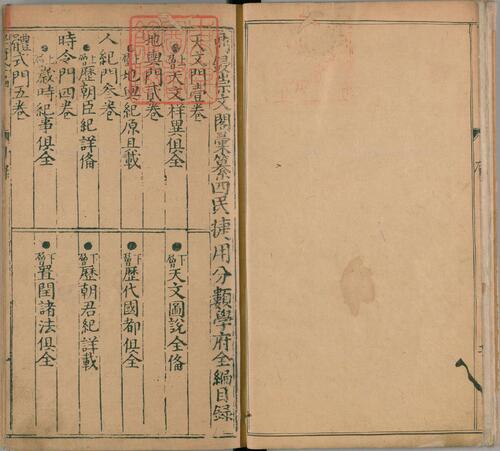 崇文閣彙纂四民捷用分類學府全編目錄
天文門壹卷
上層天文祥異俱全
下層天文圖說全俻
地輿門貳卷
上層地輿紀原且載
下層歷代國都俱全
人紀門叁卷
上層歷朝臣紀詳俻
下層歷朝君紀詳載
時令門四卷
上層歲時紀事俱全
下層置閏諸法俱全
體式門五卷